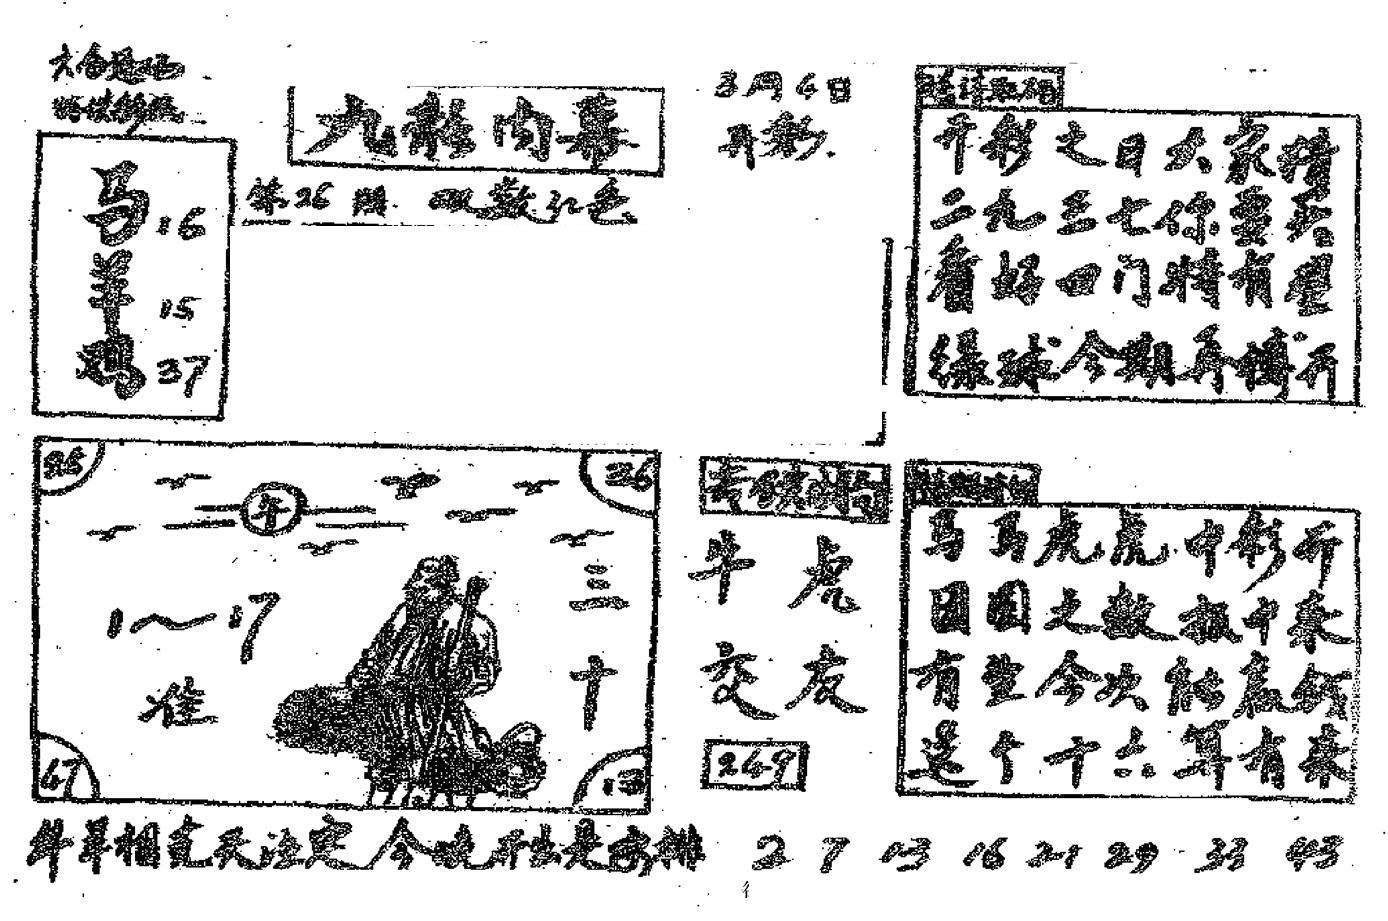 马 16
羊 15
鸡 37
九龙内幕
第26期 双数红色
3月6日
开彩
开彩之日大家猜
二九三七你要
看好四门特有望
绿球今期再博开
25
26
牛
1～17
准
三
十
47
13
牛 虎
交 友
269
马马虎虎中彩开
团圆之数报中来
有望今次能赢钱
送个十六算有来
牛羊相克天注定 今晚开出是安排
2 7 13 16 21 29 33 43